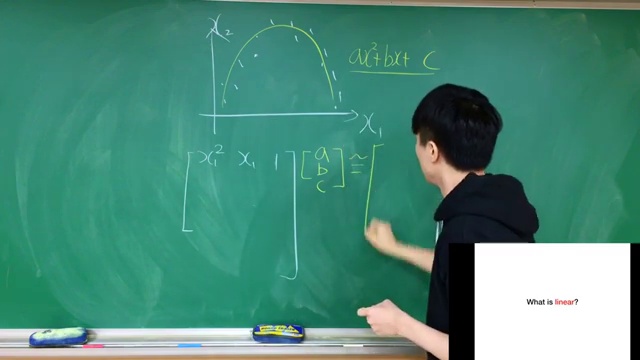 x₂
ax²+bx+ c
x₁
[x₁² x₁ 1] [a b c] ≅ [
What is linear?